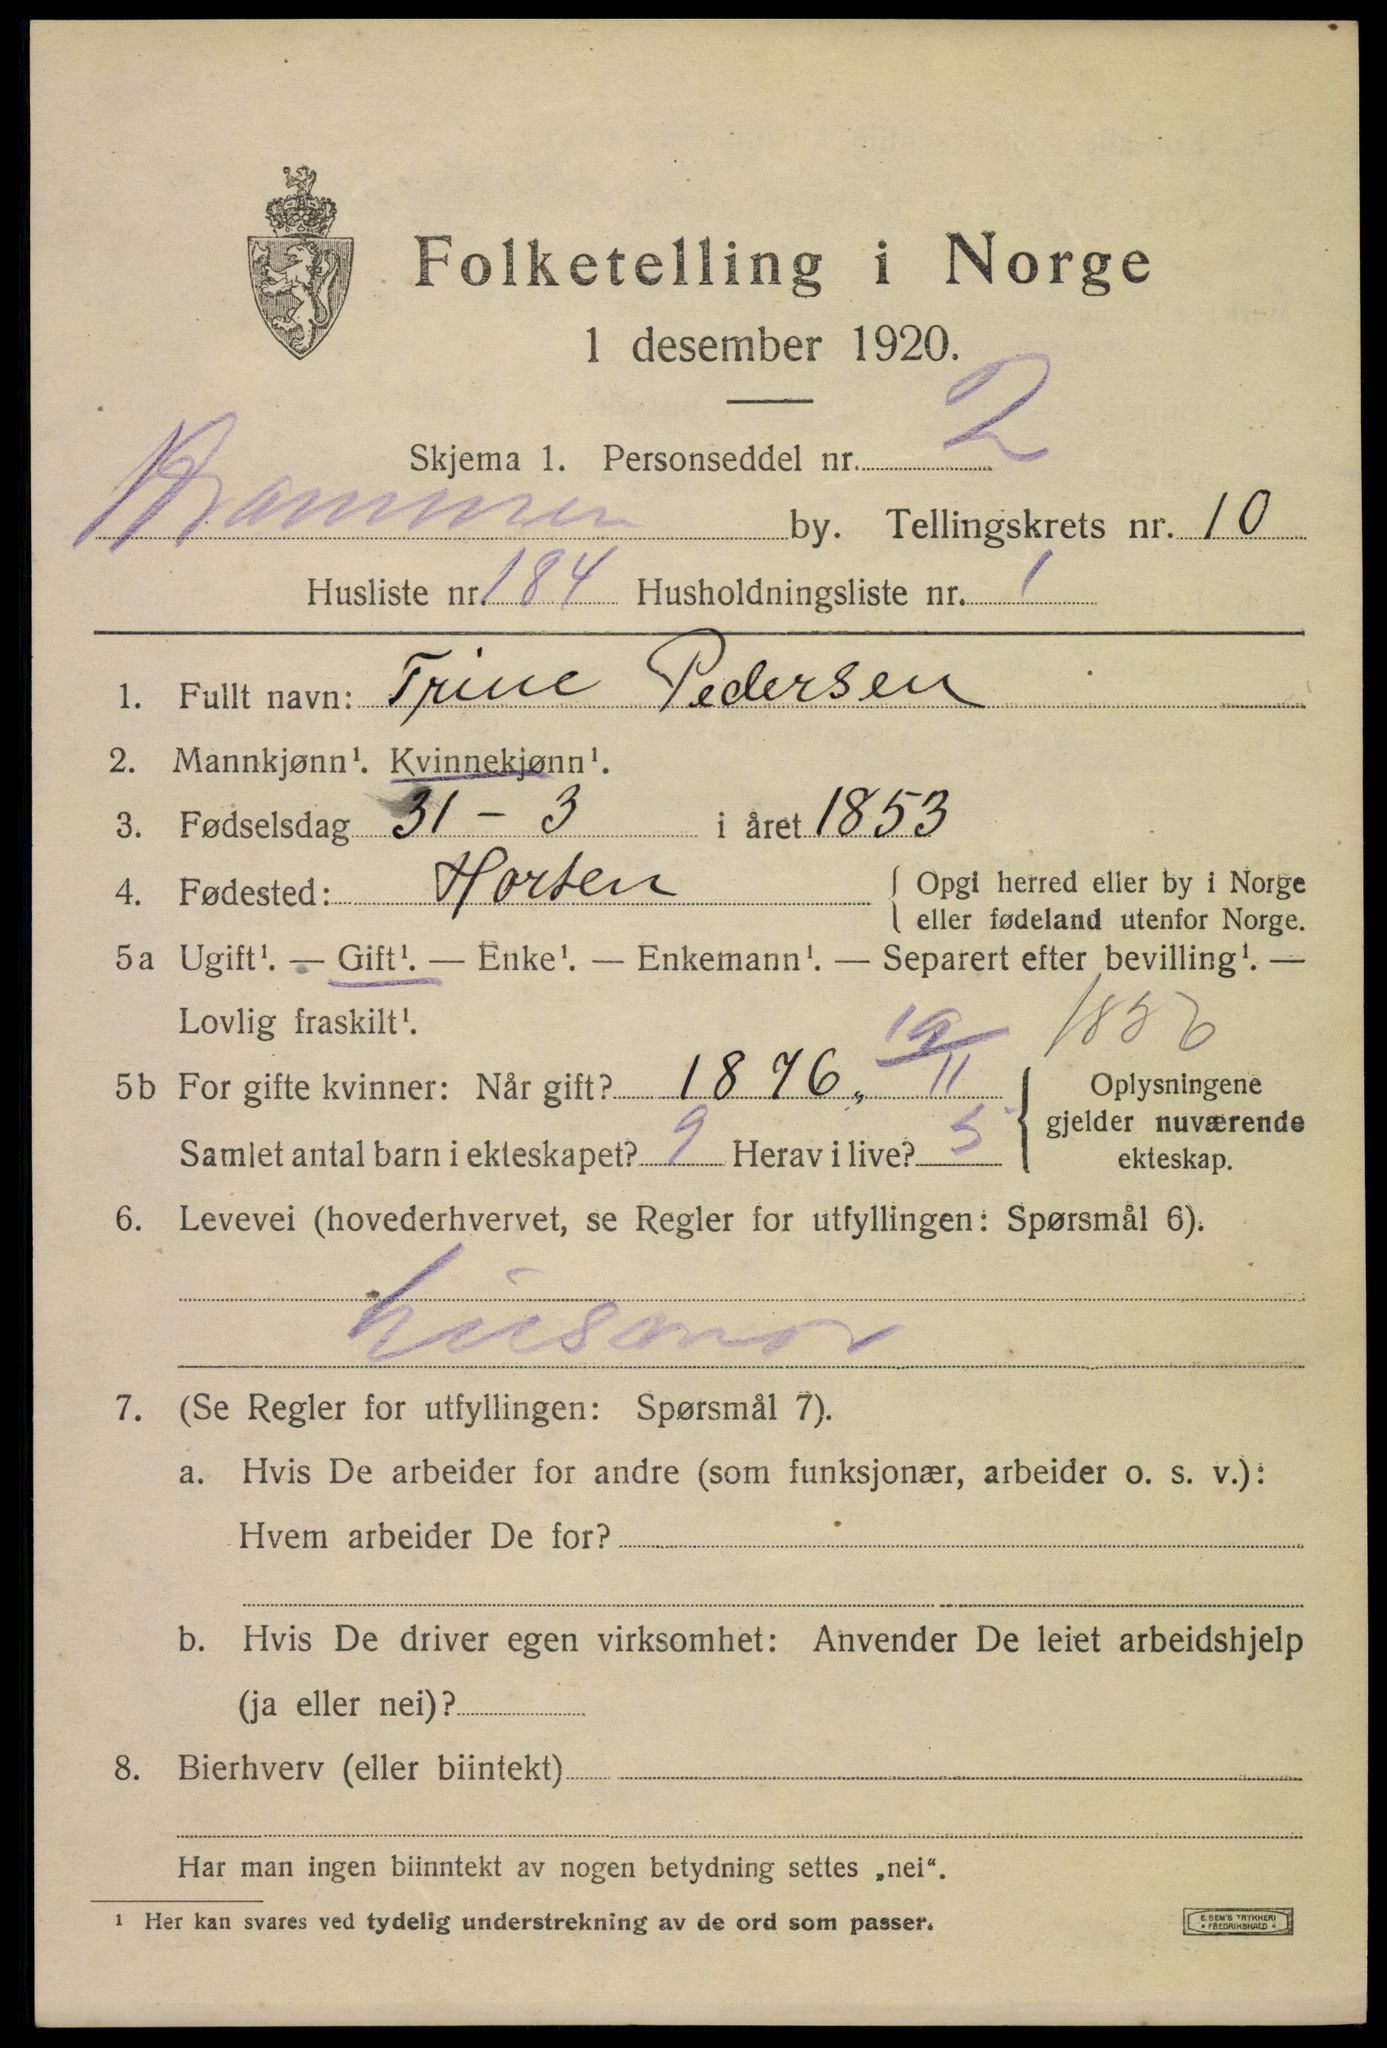 Folketelling i Norge
1 desember 1920.
Skjema 1. Personseddel nr. 2
Drammen by. Tellingskrets nr. 10
Husliste nr. 184 Husholdningsliste nr. 1
1. Fullt navn: Trine Pedersen
2. Mannkjønn¹. Kvinnekjønn¹.
3. Fødselsdag 31 - 3 i året 1853
4. Fødested: Horten { Opgi herred eller by i Norge
eller fødeland utenfor Norge.
5a Ugift¹. — Gift¹. — Enke¹. — Enkemann¹. — Separert efter bevilling¹. —
Lovlig fraskilt¹.
5b For gifte kvinner: Når gift? 1876, 19/11 Oplysningene
gjelder nuværende
Samlet antal barn i ekteskapet? 9 Herav i live? 5 ekteskap.
6. Levevei (hovederhvervet, se Regler for utfyllingen: Spørsmål 6).
husmor
7. (Se Regler for utfyllingen: Spørsmål 7).
a. Hvis De arbeider for andre (som funksjonær, arbeider o. s. v.):
Hvem arbeider De for?
b. Hvis De driver egen virksomhet: Anvender De leiet arbeidshjelp
(ja eller nei)?
8. Bierhverv (eller biintekt)
Har man ingen biinntekt av nogen betydning settes „nei“.
¹ Her kan svares ved tydelig understrekning av de ord som passer.
E. SEM'S TRYKKERI
* FREDRIKSHALD *